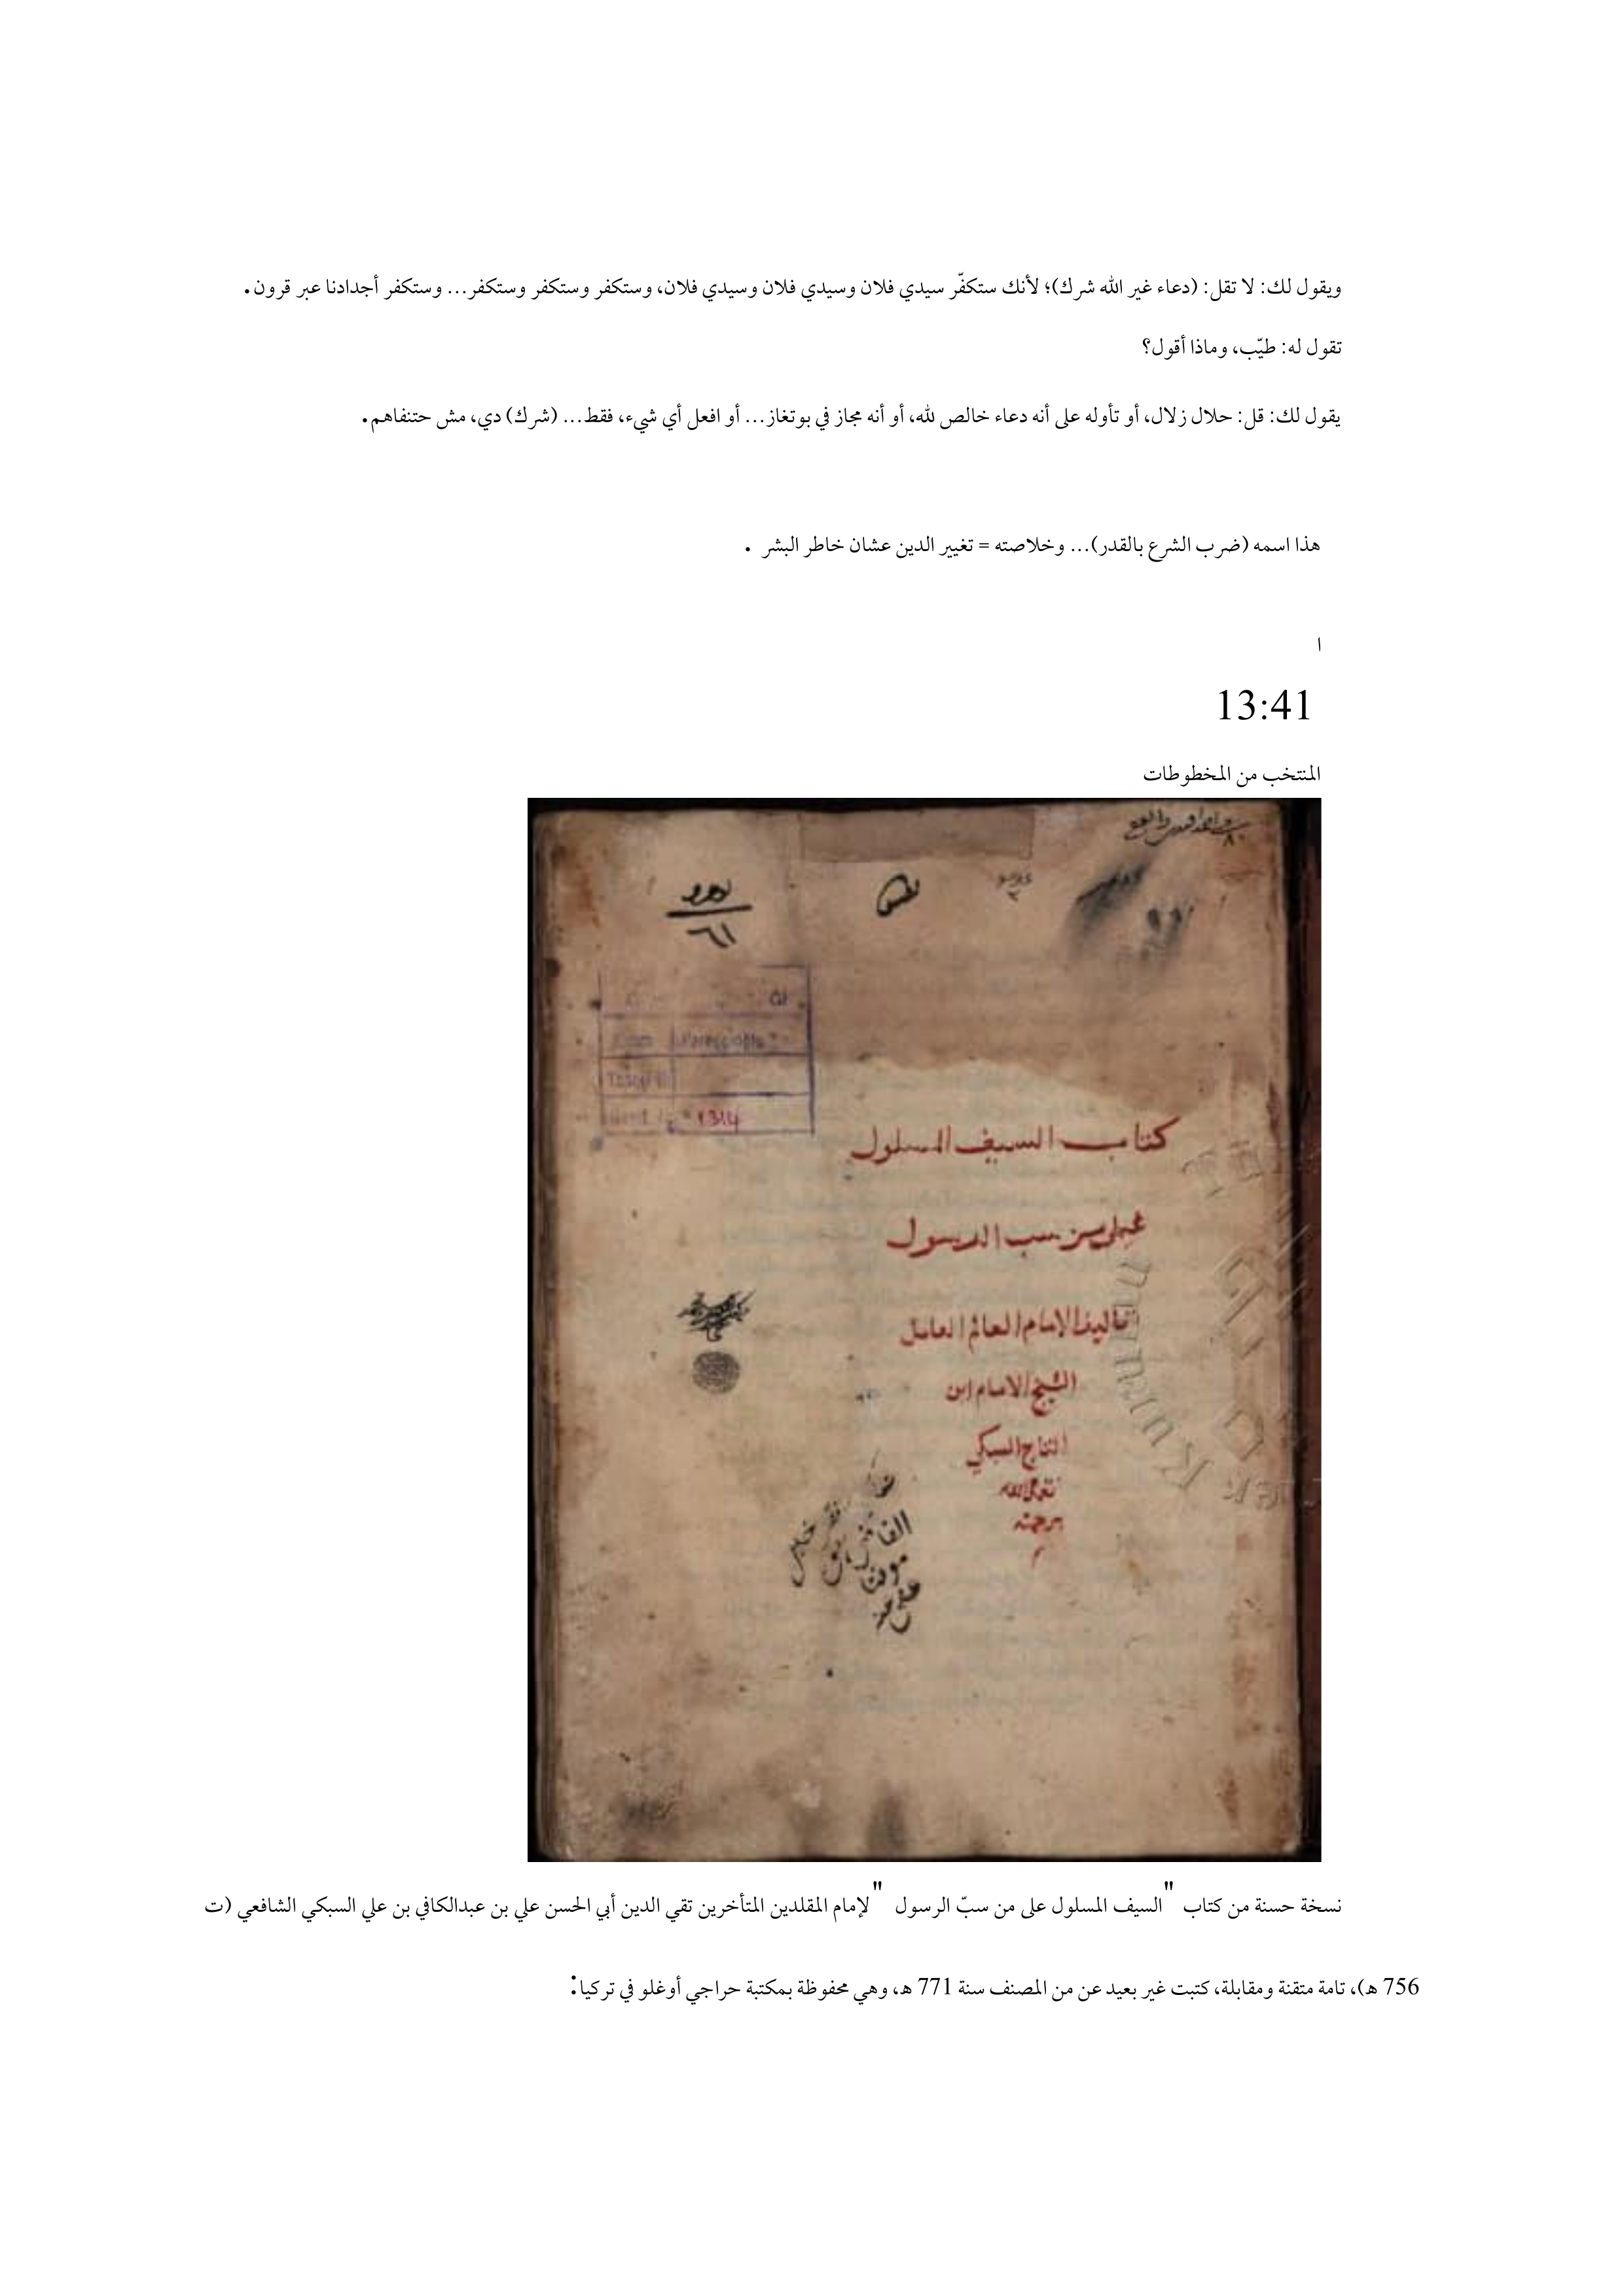 ويقول لك: لا تقل: (دعاء غير الله شرك)؛ لأنك ستكفّر سيدي فلان وسيدي فلان وسيدي فلان، وستكفر وستكفر وستكفر... وستكفر أجدادنا عبر قرون.
تقول له: طيّب، وماذا أقول؟
يقول لك: قل: حلال زلال، أو تأوله على أنه دعاء خالص لله، أو أنه مجاز في بوتغاز... أو افعل أي شيء، فقط... (شرك) دي، مش حتنفاهم.
هذا اسمه (ضرب الشرع بالقدر)... وخلاصته = تغيير الدين عشان خاطر البشر .
ا
13:41
المنتخب من المخطوطات
1314
كتاب السيف المسلول
على من سب الرسول
تاليف الامام العالم العامل
الشيخ الامام ابن
التاج السبكي
تغمده الله
برحمته
نسخة حسنة من كتاب "السيف المسلول على من سبّ الرسول " لإمام المقلدين المتأخرين تقي الدين أبي الحسن علي بن عبدالكافي بن علي السبكي الشافعي (ت
756 هـ)، تامة متقنة ومقابلة، كتبت غير بعيد عن من المصنف سنة 771 هـ، وهي محفوظة بمكتبة حراجي أوغلو في تركيا: